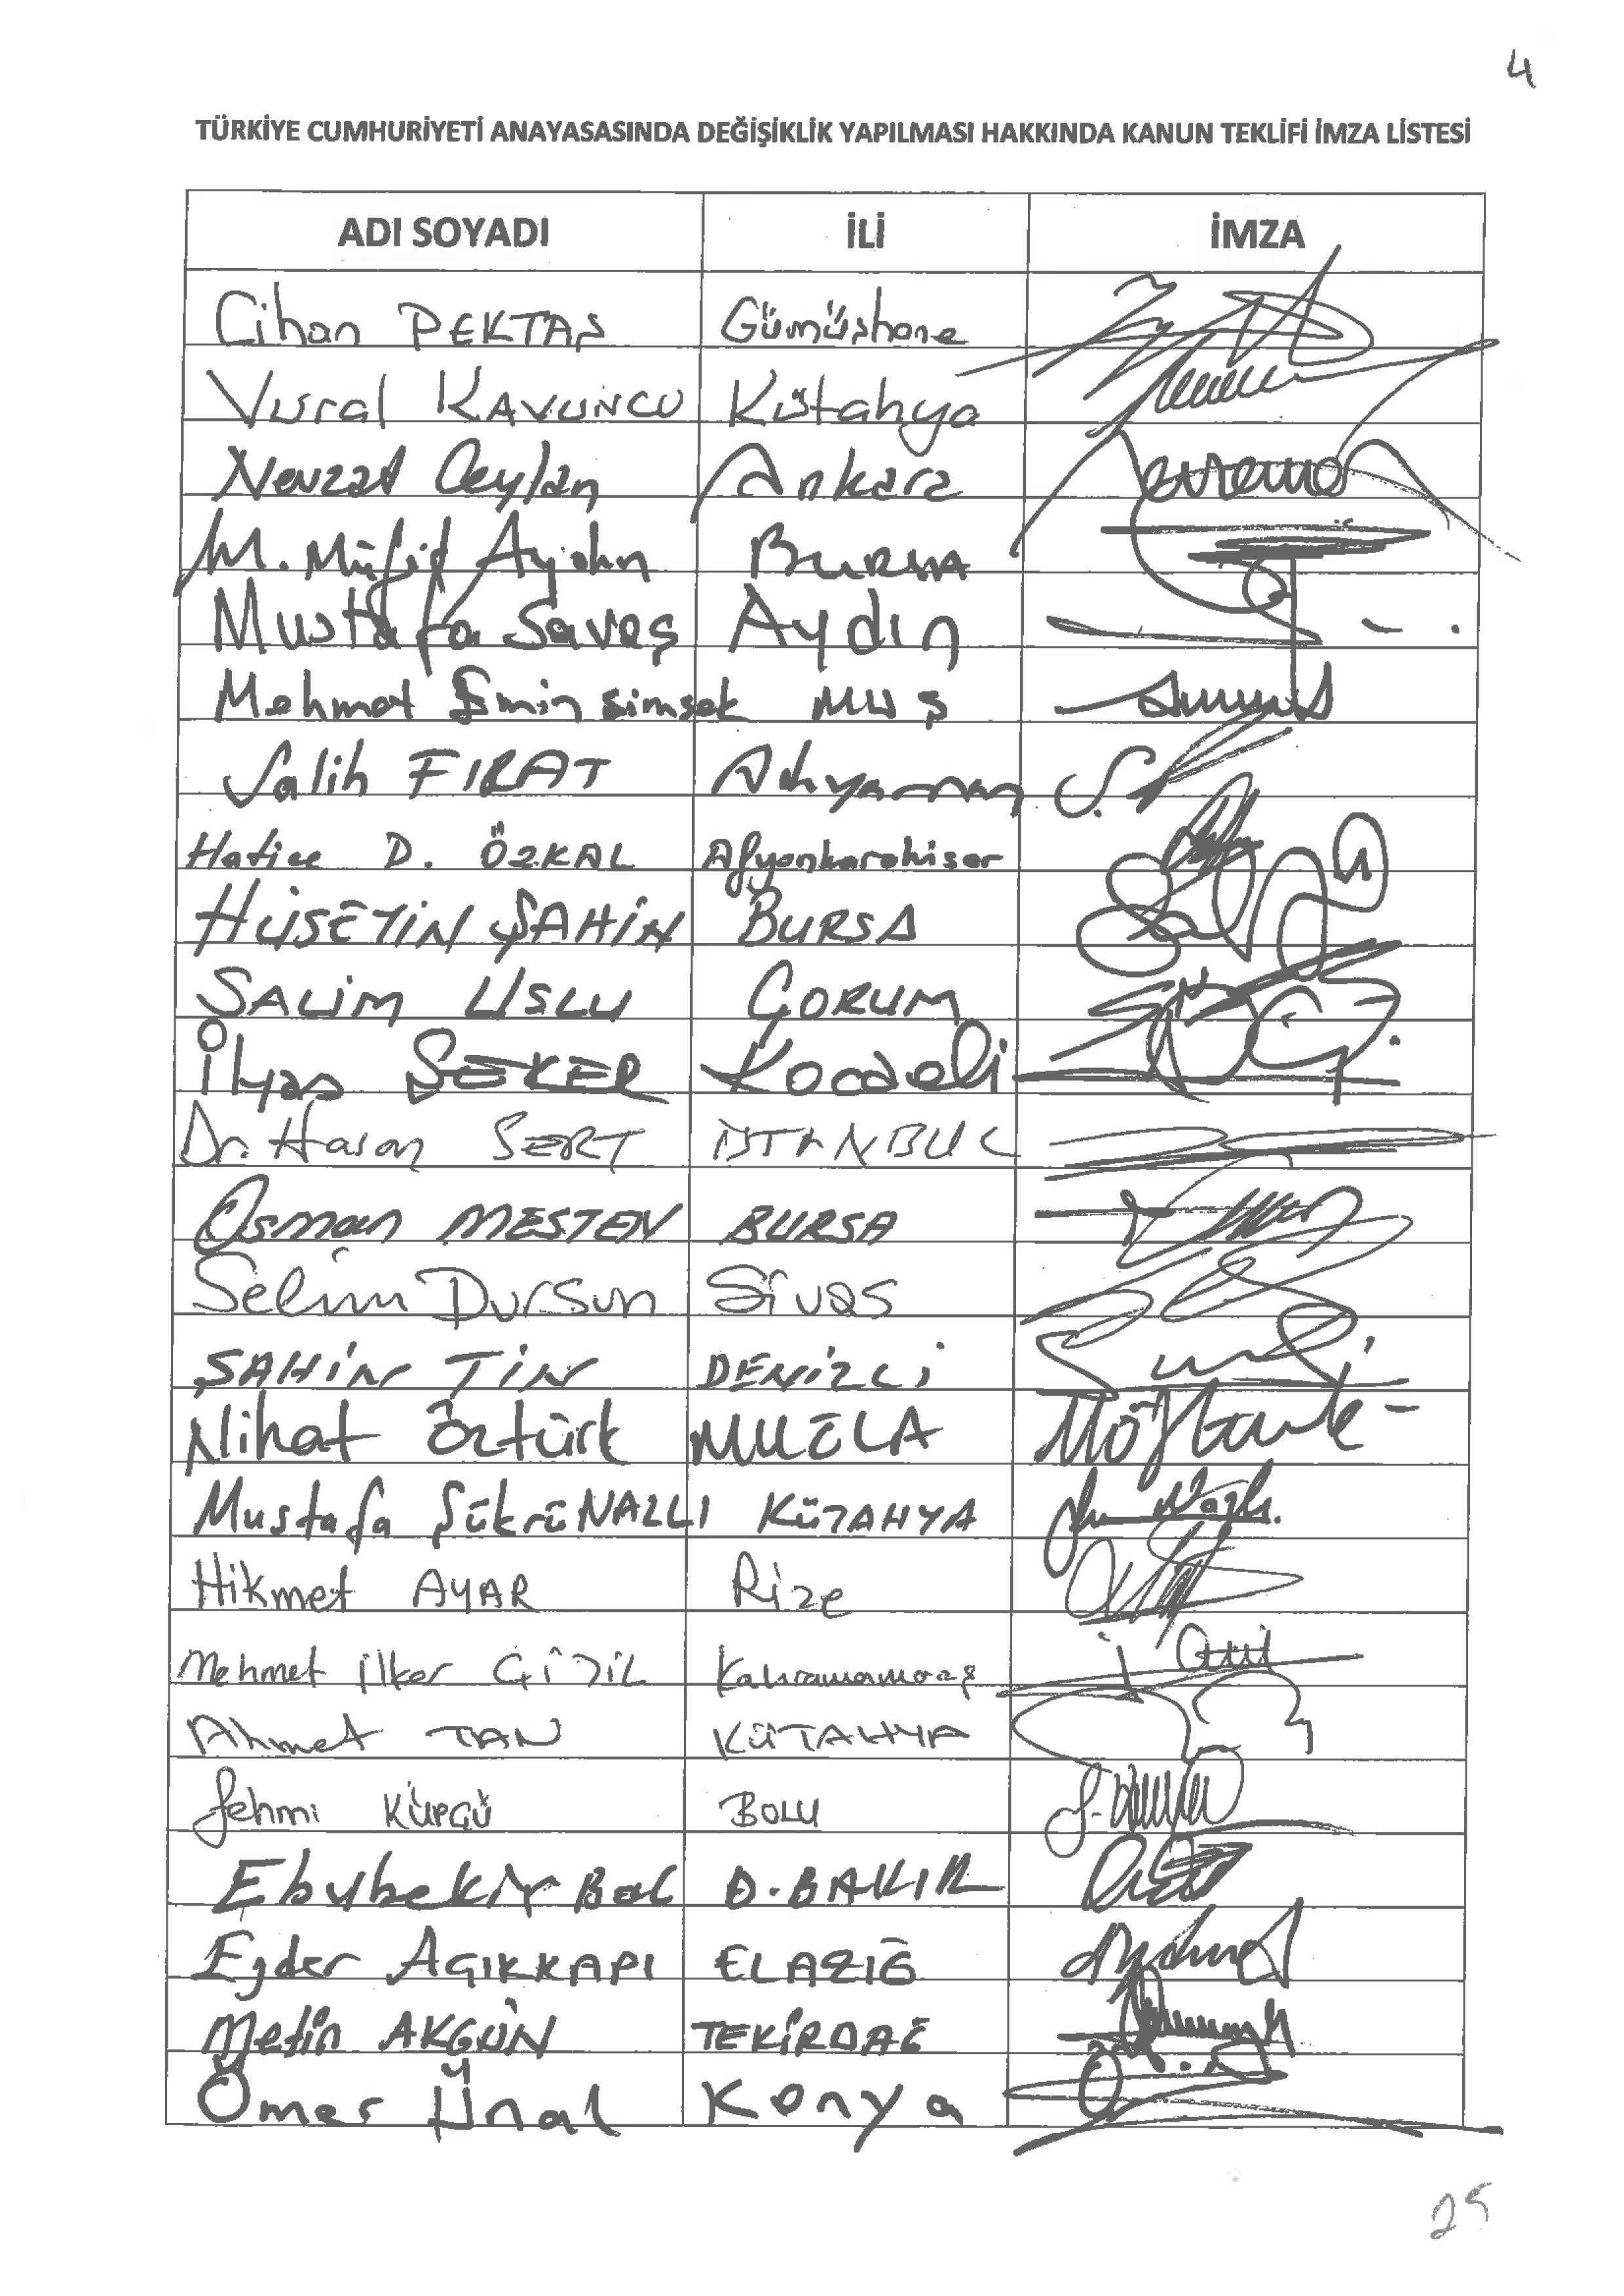 4
TÜRKİYE CUMHURİYETİ ANAYASASINDA DEĞİŞİKLİK YAPILMASI HAKKINDA KANUN TEKLİFİ İMZA LİSTESİ
ADI SOYADI İLİ İMZA
Cihan PEKTAŞ Gümüşhane
Vural KAVUNCU Kütahya
Nevzat Ceylan Ankara
M. Müfit Aydın BURSA
Mustafa Savaş Aydın
Mehmet Emin Şimşek MUŞ
Salih FIRAT Adıyaman
Hatice D. ÖZKAL Afyonkarahisar
HÜSEYİN ŞAHİN BURSA
SALİM USLU ÇORUM
İlyas ŞEKER Kocaeli
Dr. Hasan SERT İSTANBUL
Osman MESTEN BURSA
Selim Dursun Sivas
ŞAHİN TİN DENİZLİ
Nihat Öztürk MUĞLA
Mustafa Şükrü NAZLI KÜTAHYA
Hikmet AYAR Rize
Mehmet İlker ÇİTİL Kahramanmaraş
Ahmet TAN KÜTAHYA
Fehmi KÜPÇÜ BOLU
Ebubekir BAL D.BAKIR
Ejder AÇIKKAPI ELAZIĞ
Metin AKGÜN TEKİRDAĞ
Ömer Ünal Konya
25